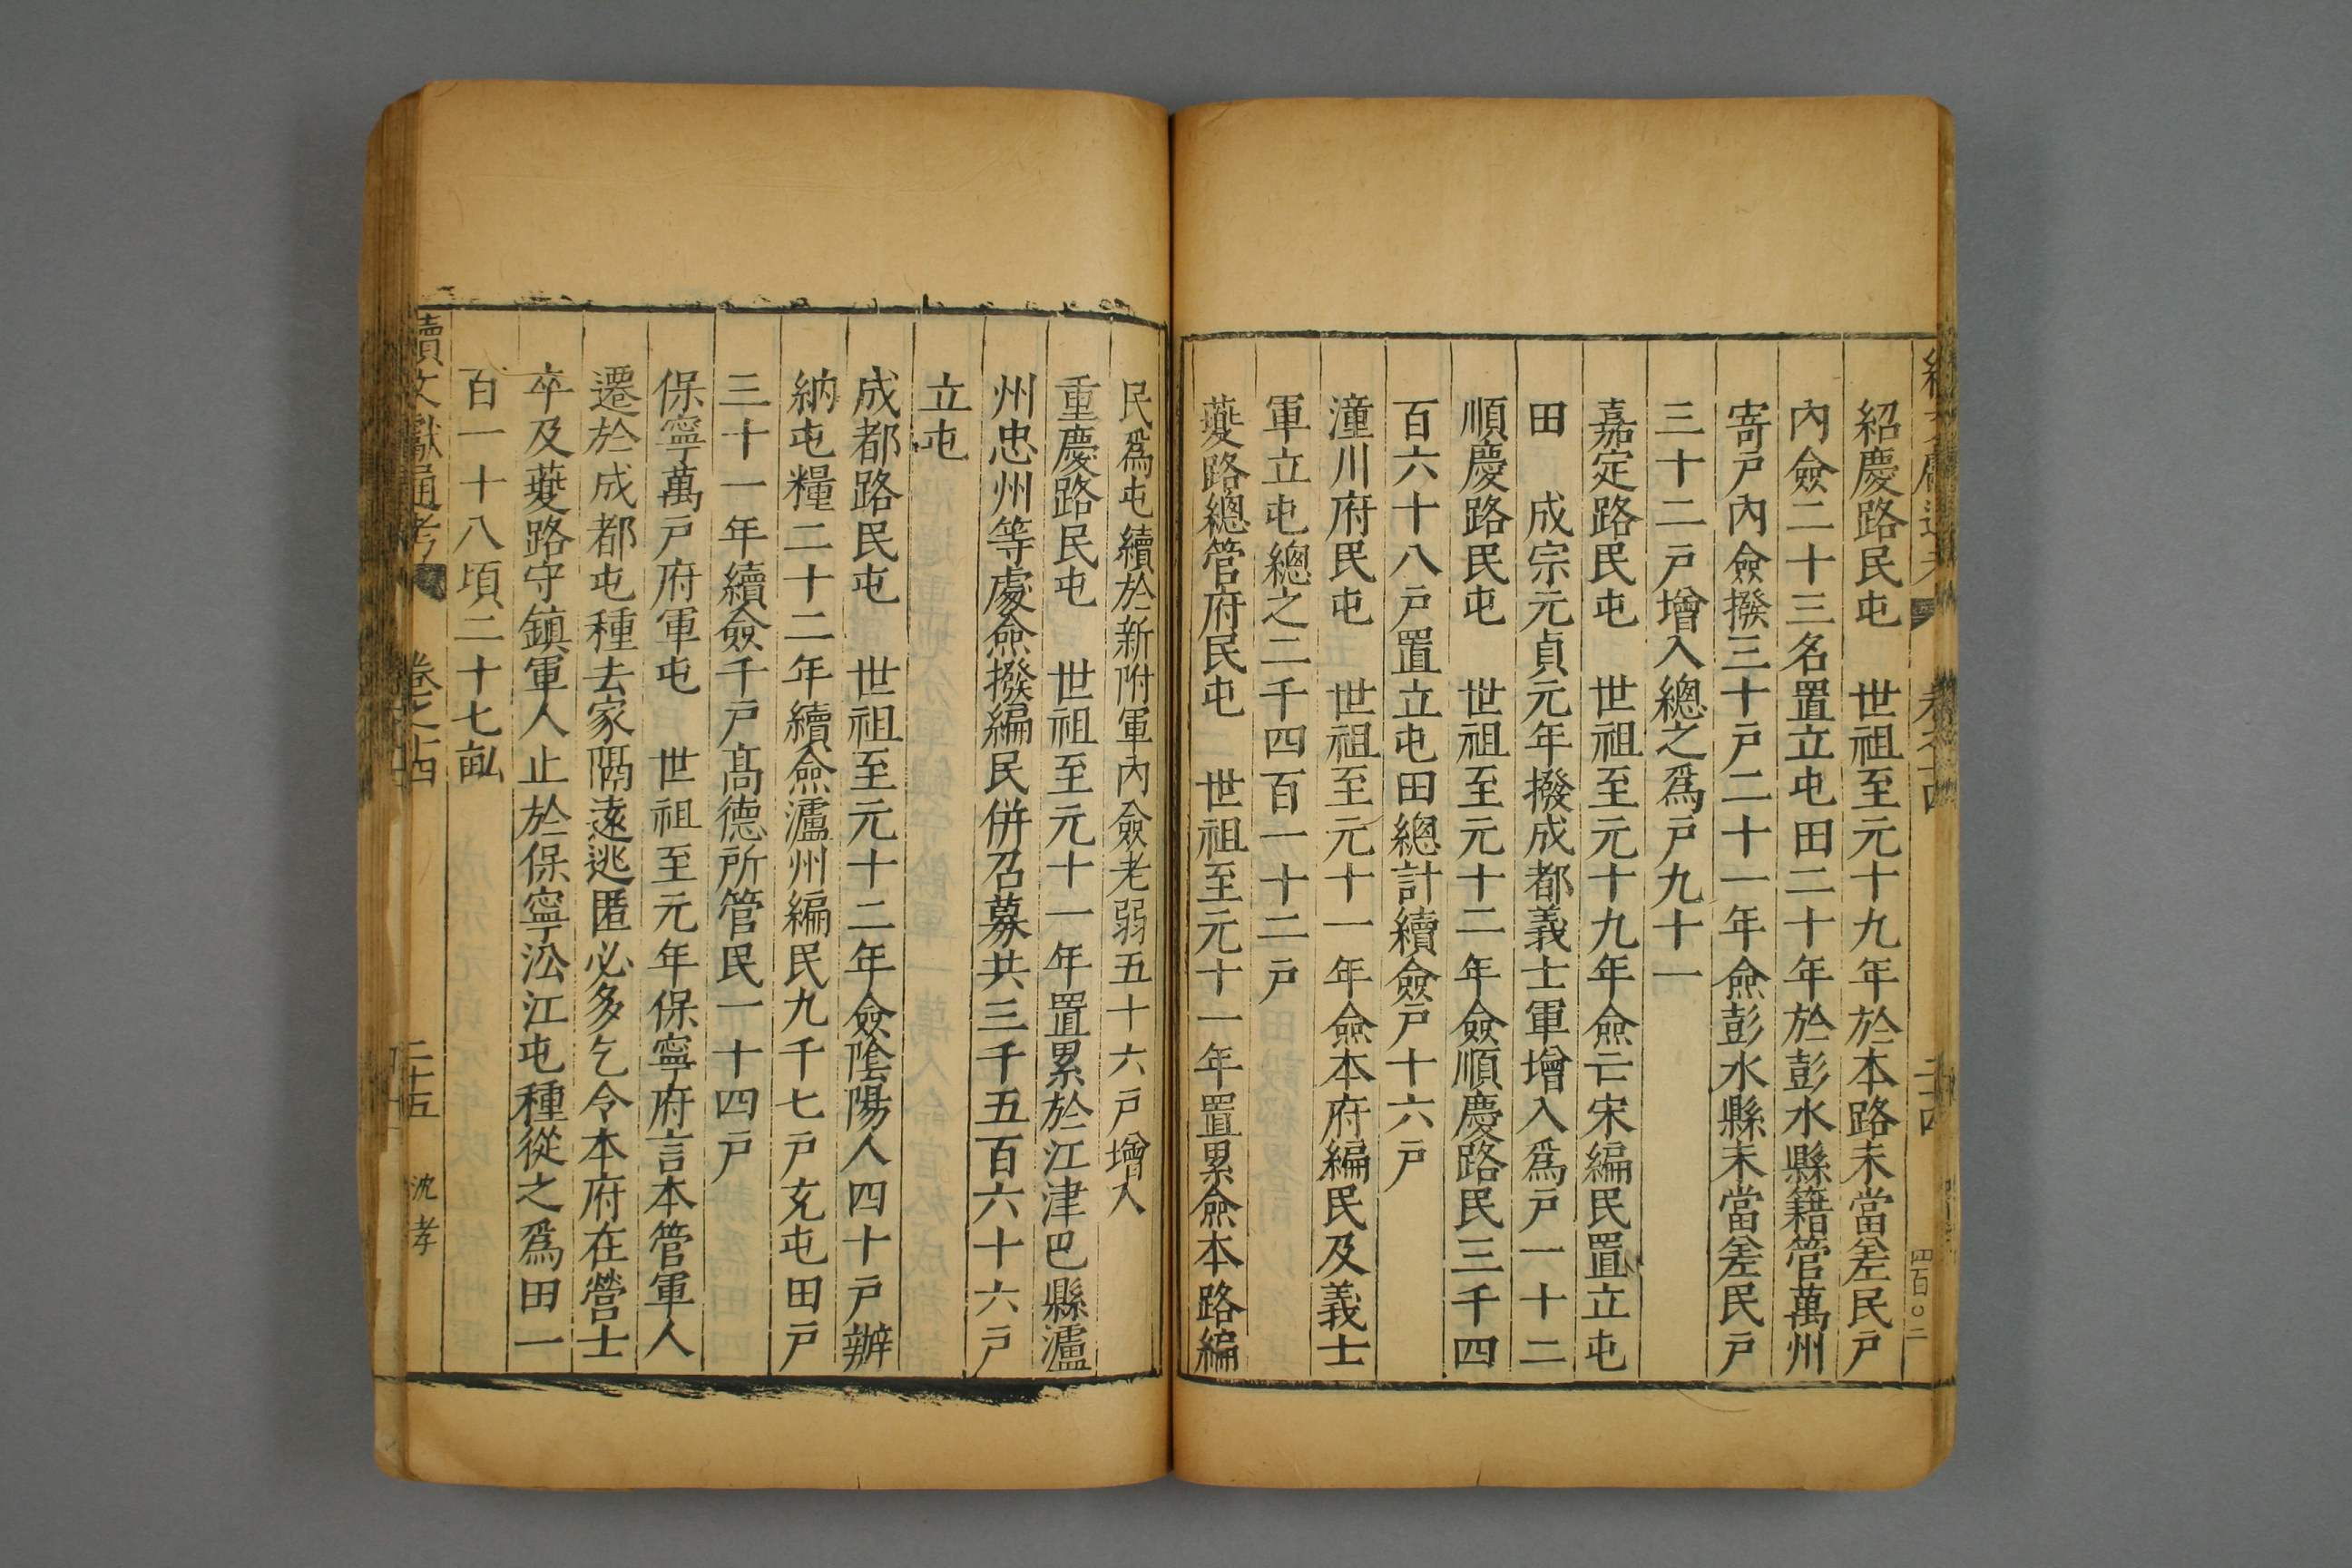 紹慶路民屯　世祖至元十九年於本路未當差民戶
內僉二十三名置立屯田二十年於彭水縣籍管萬州
寄戶內僉撥三十戶二十一年僉彭水縣未當差民戶
三十二戶增入總之爲戶九十一
嘉定路民屯　世祖至元十九年僉亡宋編民置立屯
田　成宗元貞元年撥成都義士軍增入爲戶一十二
順慶路民屯　世祖至元十二年僉順慶路民三千四
百六十八戶置立屯田總計續僉戶十六戶
潼川府民屯　世祖至元十一年僉本府編民及義士
軍立屯總之二千四百一十二戶
夔路總管府民屯　世祖至元十一年置累僉本路編
民爲屯續於新附軍內僉老弱五十六戶增入
重慶路民屯　世祖至元十一年置累於江津巴縣瀘
州忠州等處僉撥編民併召募共三千五百六十六戶
立屯
成都路民屯　世祖至元十二年僉陰陽人四十戶辦
納屯糧二十二年續僉瀘州編民九千七戶充屯田戶
三十一年續僉千戶高德所管民一十四戶
保寧萬戶府軍屯　世祖至元年保寧府言本管軍人
遷於成都屯種去家隔遠逃匿必多乞令本府在營士
卒及夔路守鎮軍人止於保寧沿江屯種從之爲田一
百一十八頃二十七畝
續文獻通考　卷之十四　二十五　沈孝